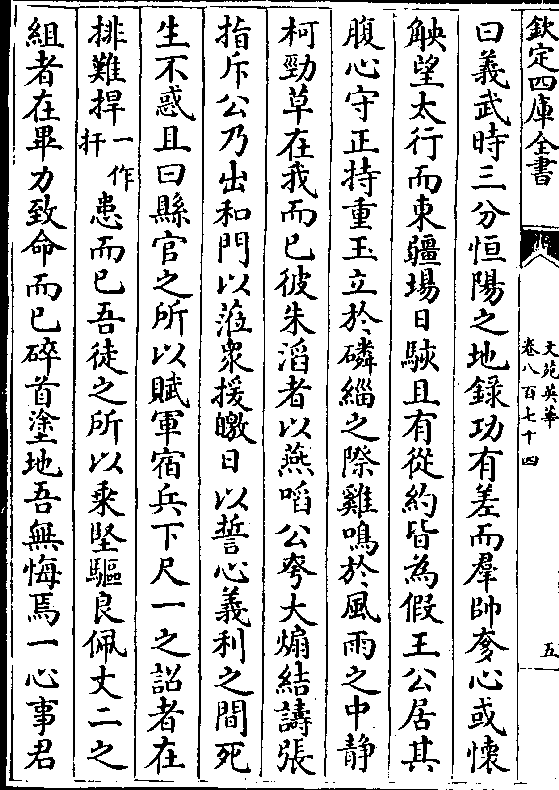 欽定四庫全書
文苑英華
卷八百七十四
五
曰義武時三分恒陽之地錄功有差而羣帥奓心或懷
觖望太行而東疆場日駭且有從約皆為假王公居其
腹心守正持重玉立於磷緇之際雞鳴於風雨之中静
柯勁草在我而已彼朱滔者以燕啗公夸大煽結譸張
指斥公乃出和門以涖衆援皦日以誓心義利之間死
生不惑且曰縣官之所以賦軍宿兵下尺一之詔者在
排難捍一作扞患而已吾徒之所以乘堅驅良佩丈二之
組者在畢力致命而已碎首塗地吾無悔焉一心事君